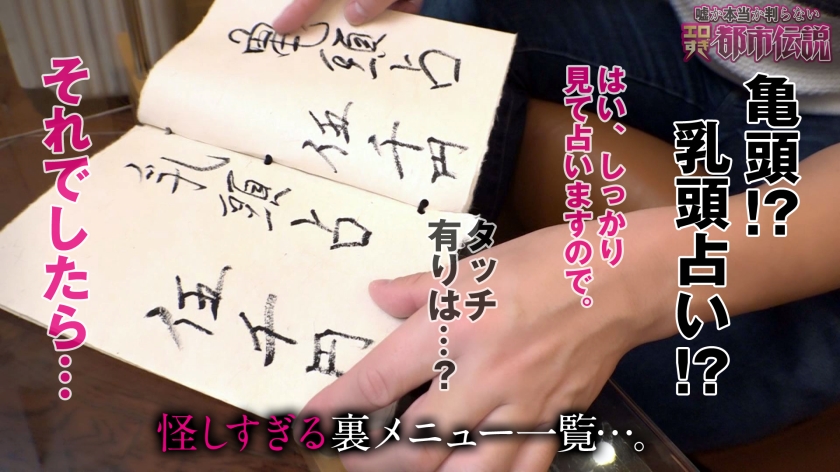 嘘か本当か判らない
エロすぎ都市伝説
亀頭!?
乳頭占い!?
はい、しっかり
見て占いますので。
タッチ
有りは…?
それでしたら…
亀頭占
伍千円
乳頭占
伍千円
怪しすぎる裏メニュー一覧…。